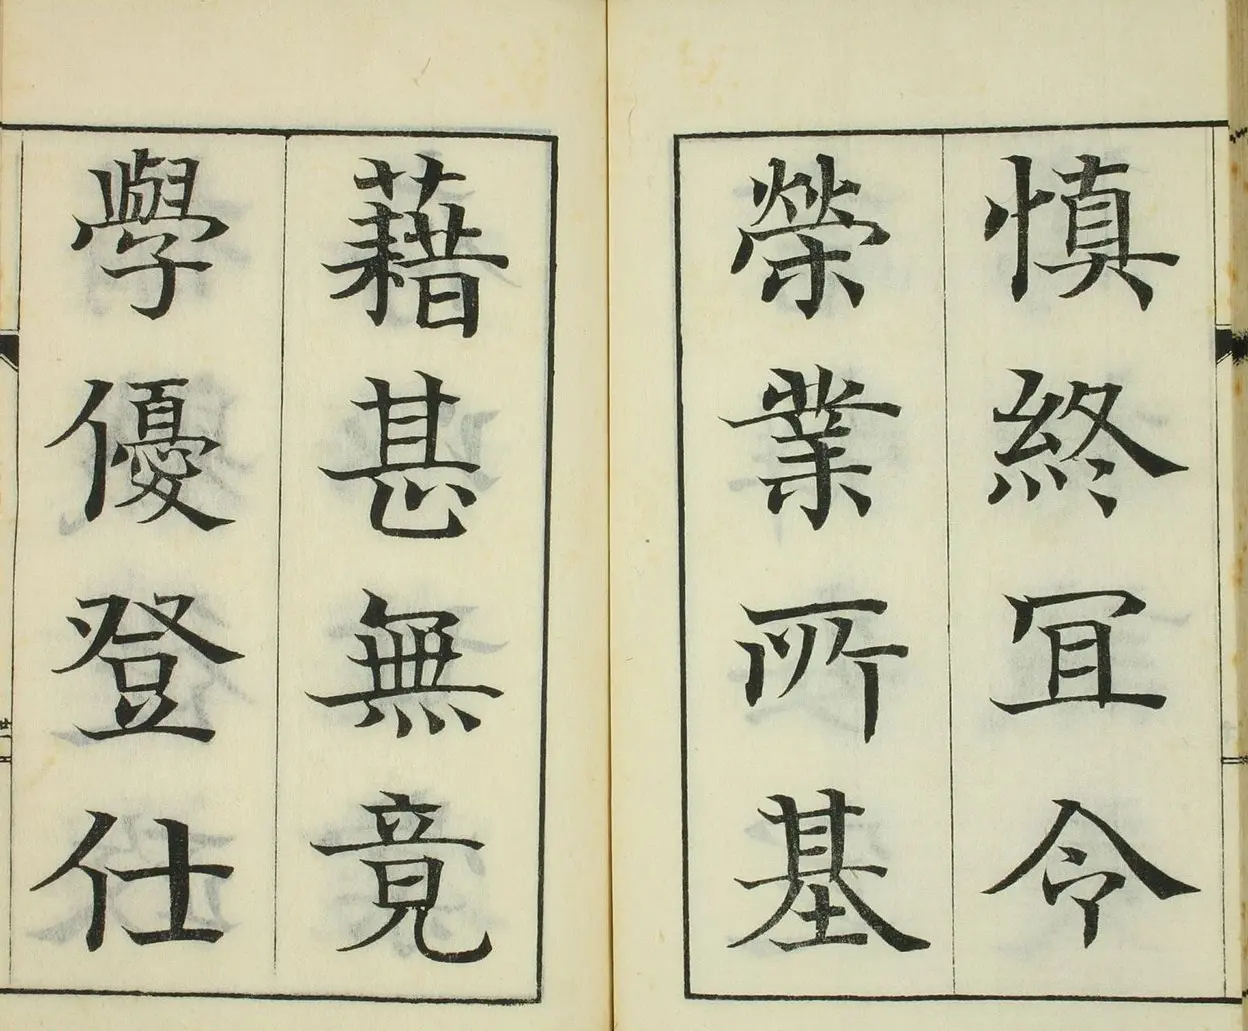 慎終冝令
榮業所基
藉甚無竟
學優登仕